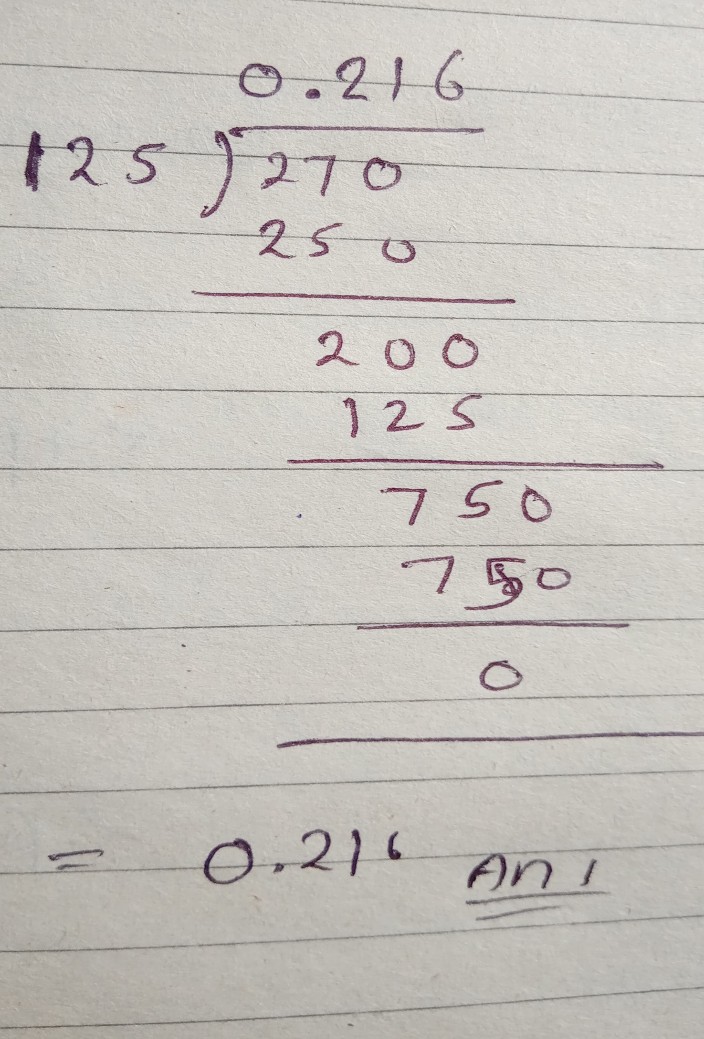 0.216
125 ) 270
250
200
125
750
750
0
= 0.216 Ans